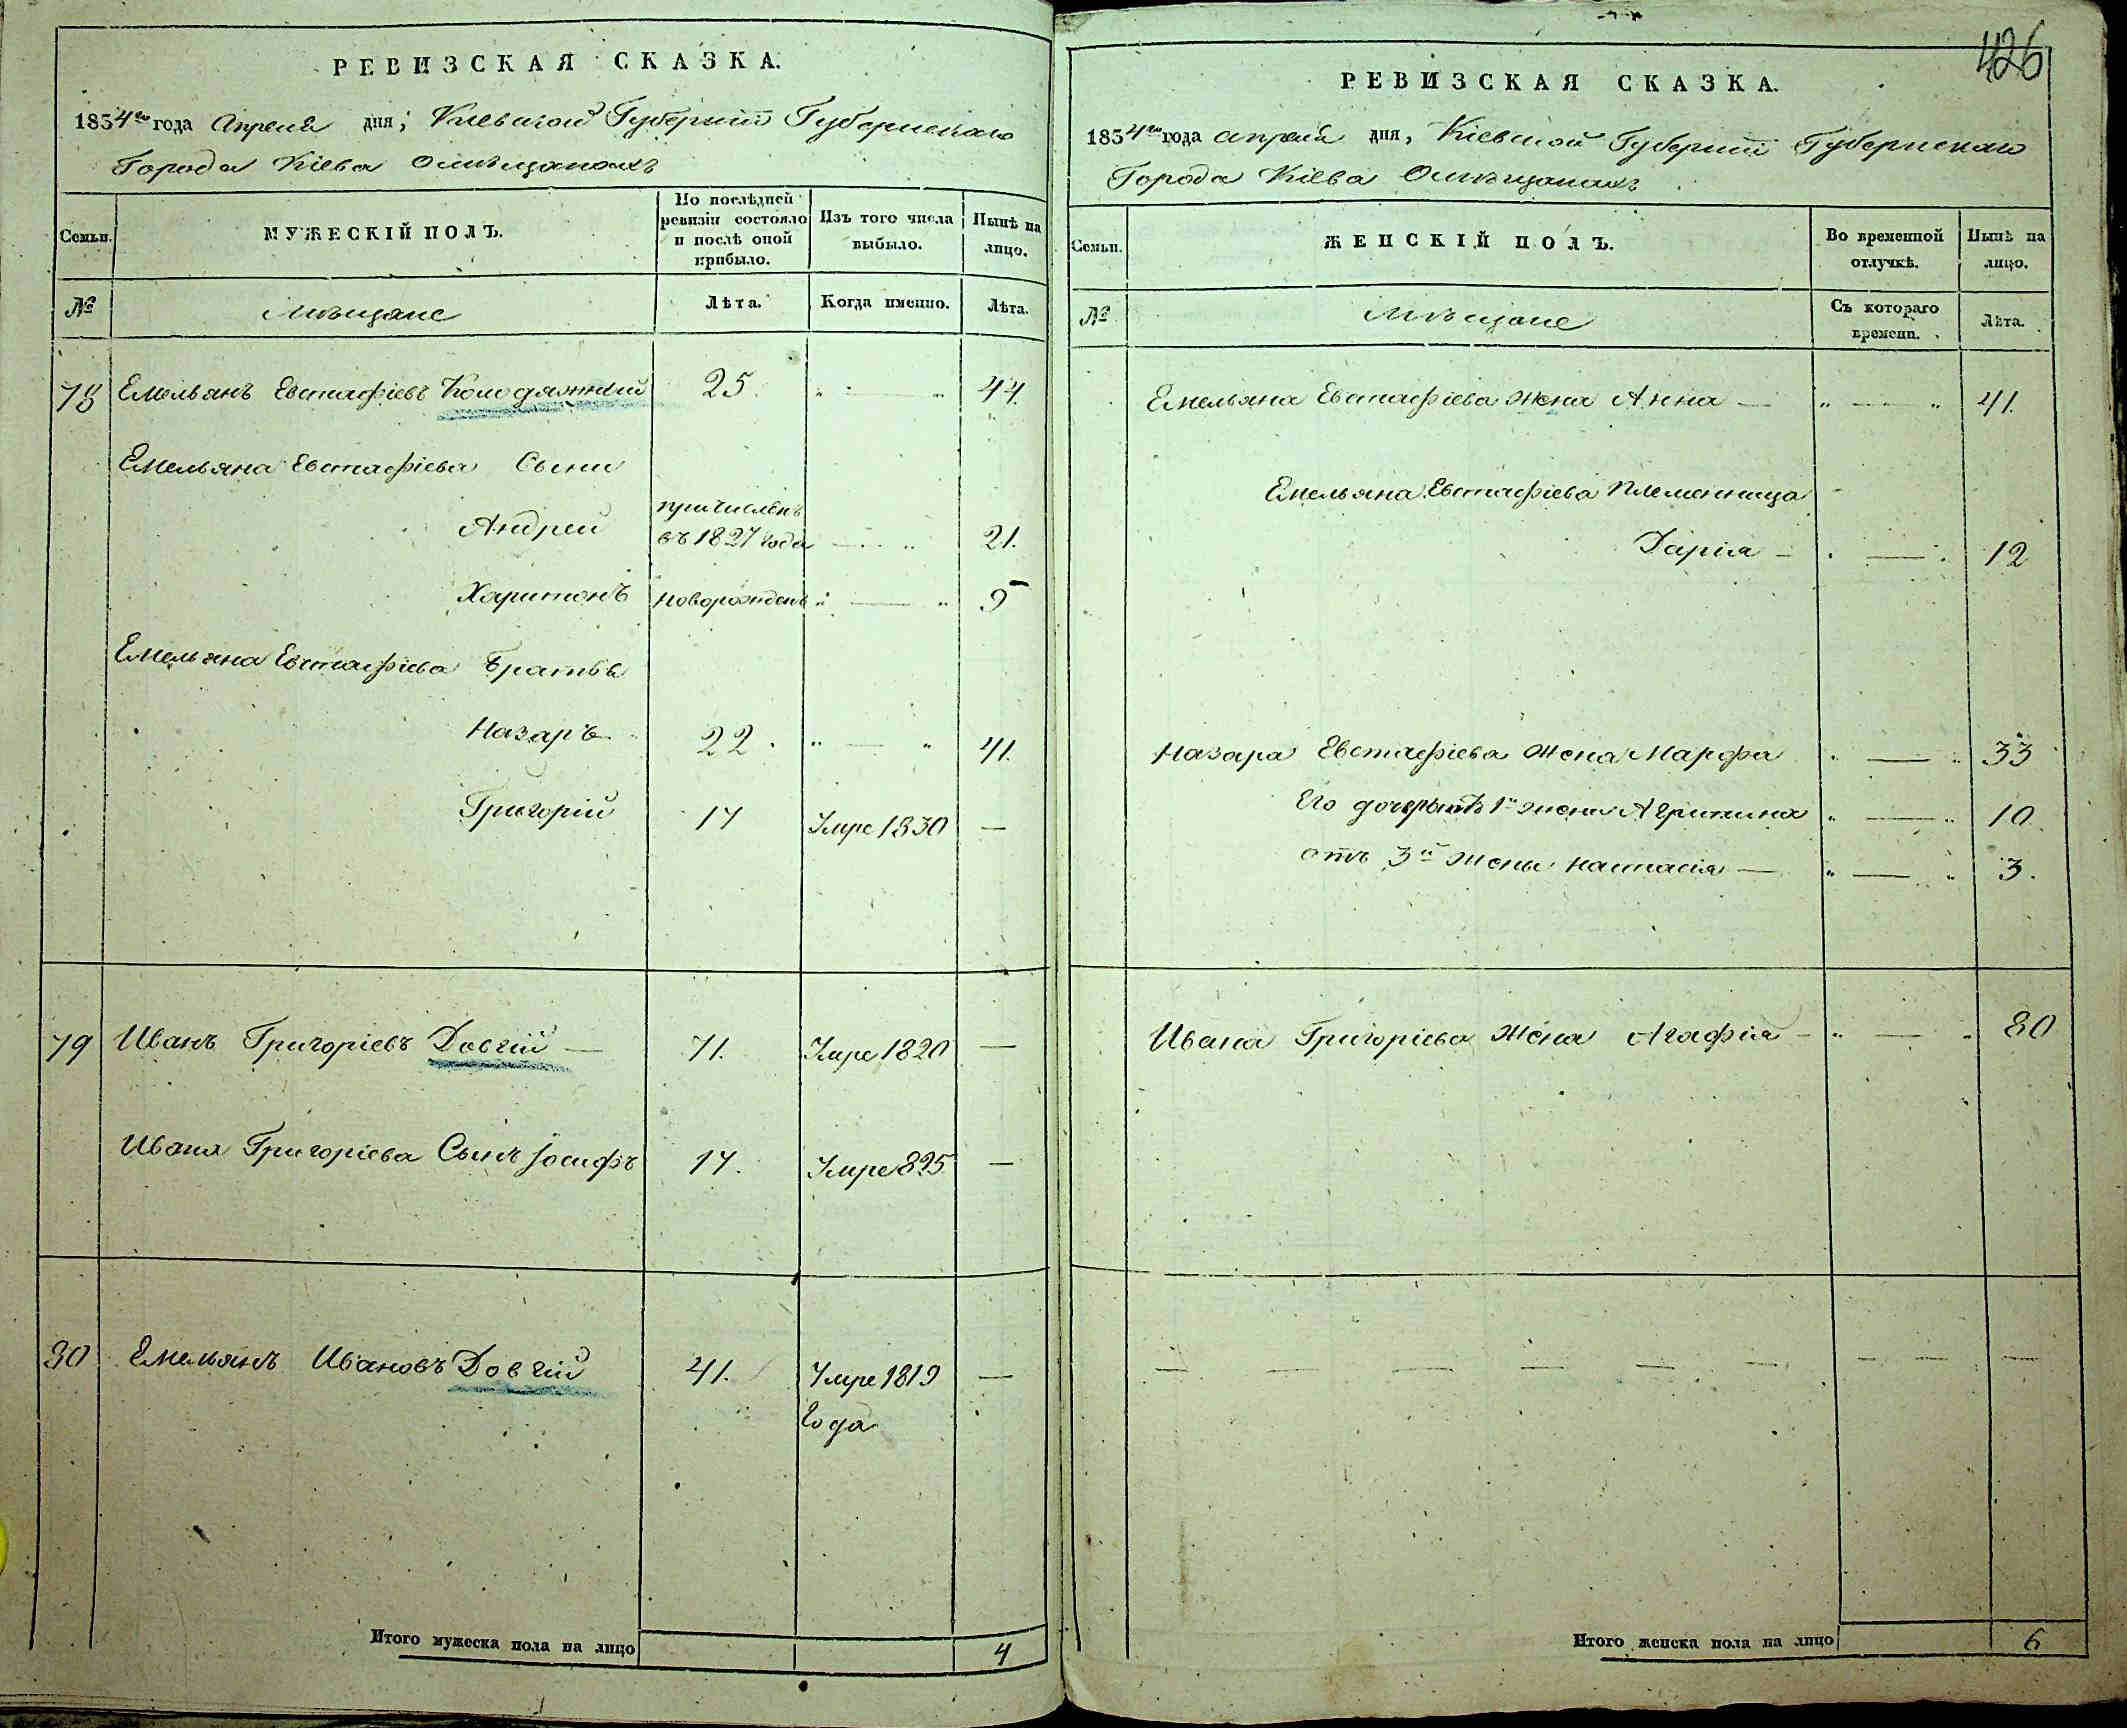 РЕВИЗСКАЯ СКАЗКА.
1834го года Апреля дня, Киевской Губернiи Губернскаго
Города Кiева Омѣщанахъ
Семьи.
МУЖЕСКIЙ ПОЛЪ.
По послѣдней ревизiи состояло и послѣ оной прибыло.
Изъ того числа выбыло.
Нынѣ на лицо.
№
Мѣщане
Лѣта.
Когда именно.
Лѣта.
78 Емельянъ Евстафiевъ Колодяжный 25 " — " 44
Емельяна Евстафiева Сыни
Андрей причисленъ въ 1827 года — " 21.
Харитонъ новорожденъ " — " 9
Емельяна Евстафiева Братья
Назаръ 22. " — " 41.
Григорiй 17 Умре 1830 —
79 Иванъ Григорiевъ Довгiй — 71. Умре 1820 —
Ивана Григорiева Сынъ Iосифъ 17. Умре 825 —
80 Емельянъ Ивановъ Довгiй 41. Умре 1819 —
года
Итого мужеска пола на лицо 4
426
РЕВИЗСКАЯ СКАЗКА.
1834го года апреля дня, Кiевской Губернiи Губернскаго
Города Кiева Омѣщанахъ
Семьи.
ЖЕНСКIЙ ПОЛЪ.
Во временной отлучкѣ.
Нынѣ на лицо.
№
Мѣщане
Съ котораго времени.
Лѣта.
Емельяна Евстафiева жена Анна — " — " 41.
Емельяна Евстафiева племенница
Дарiя — " — " 12
Назара Евстафiева жена Марфа " — " 33
Его дочери отъ 1й жени Агрипина " — " 10.
отъ 3й жены настасiя — " — " 3.
Ивана Григорiева жена Агафiя — " — " 80
— — — — — — — — — —
Итого женска пола на лицо 6